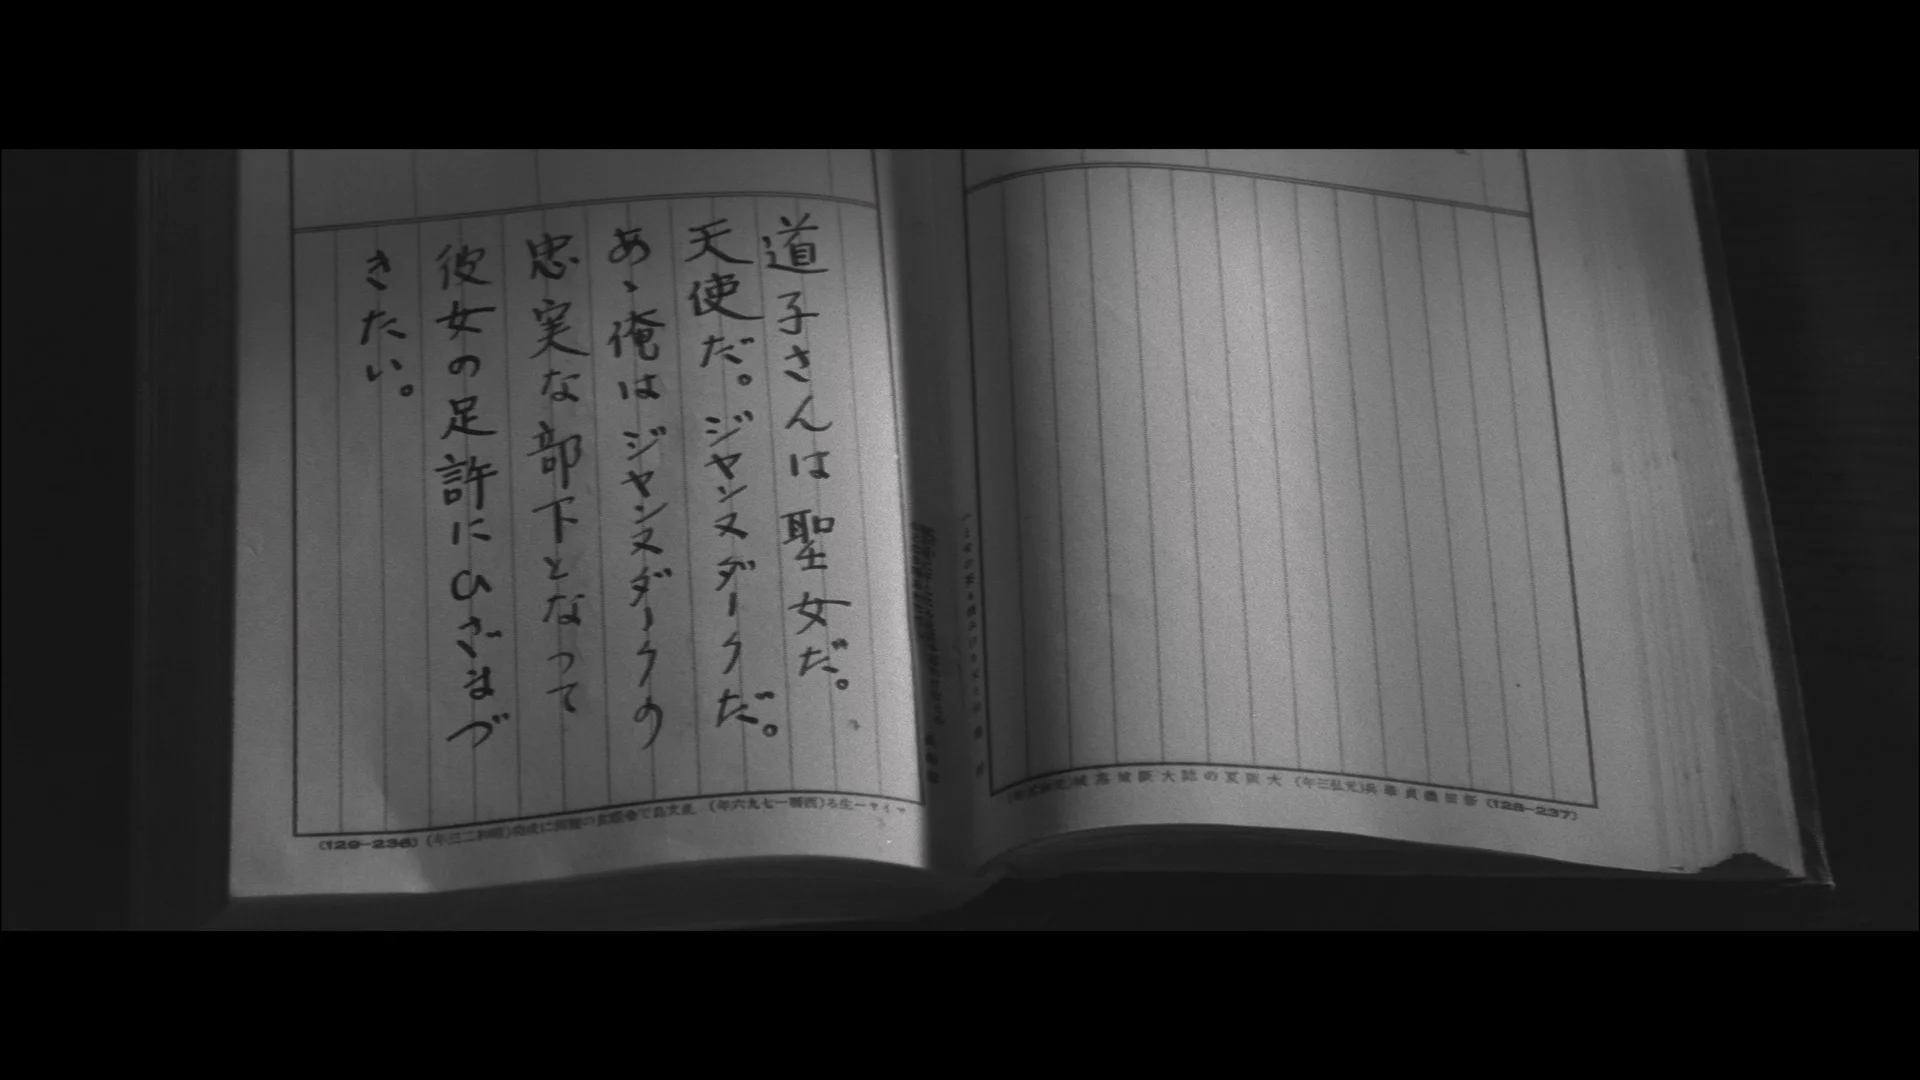 道子さんは聖女だ。
天使だ。ジャンヌダークだ。
あゝ俺はジャンヌダークの
忠実な部下となって
彼女の足許にひざまづ
きたい。
(128—237)
(129—236)